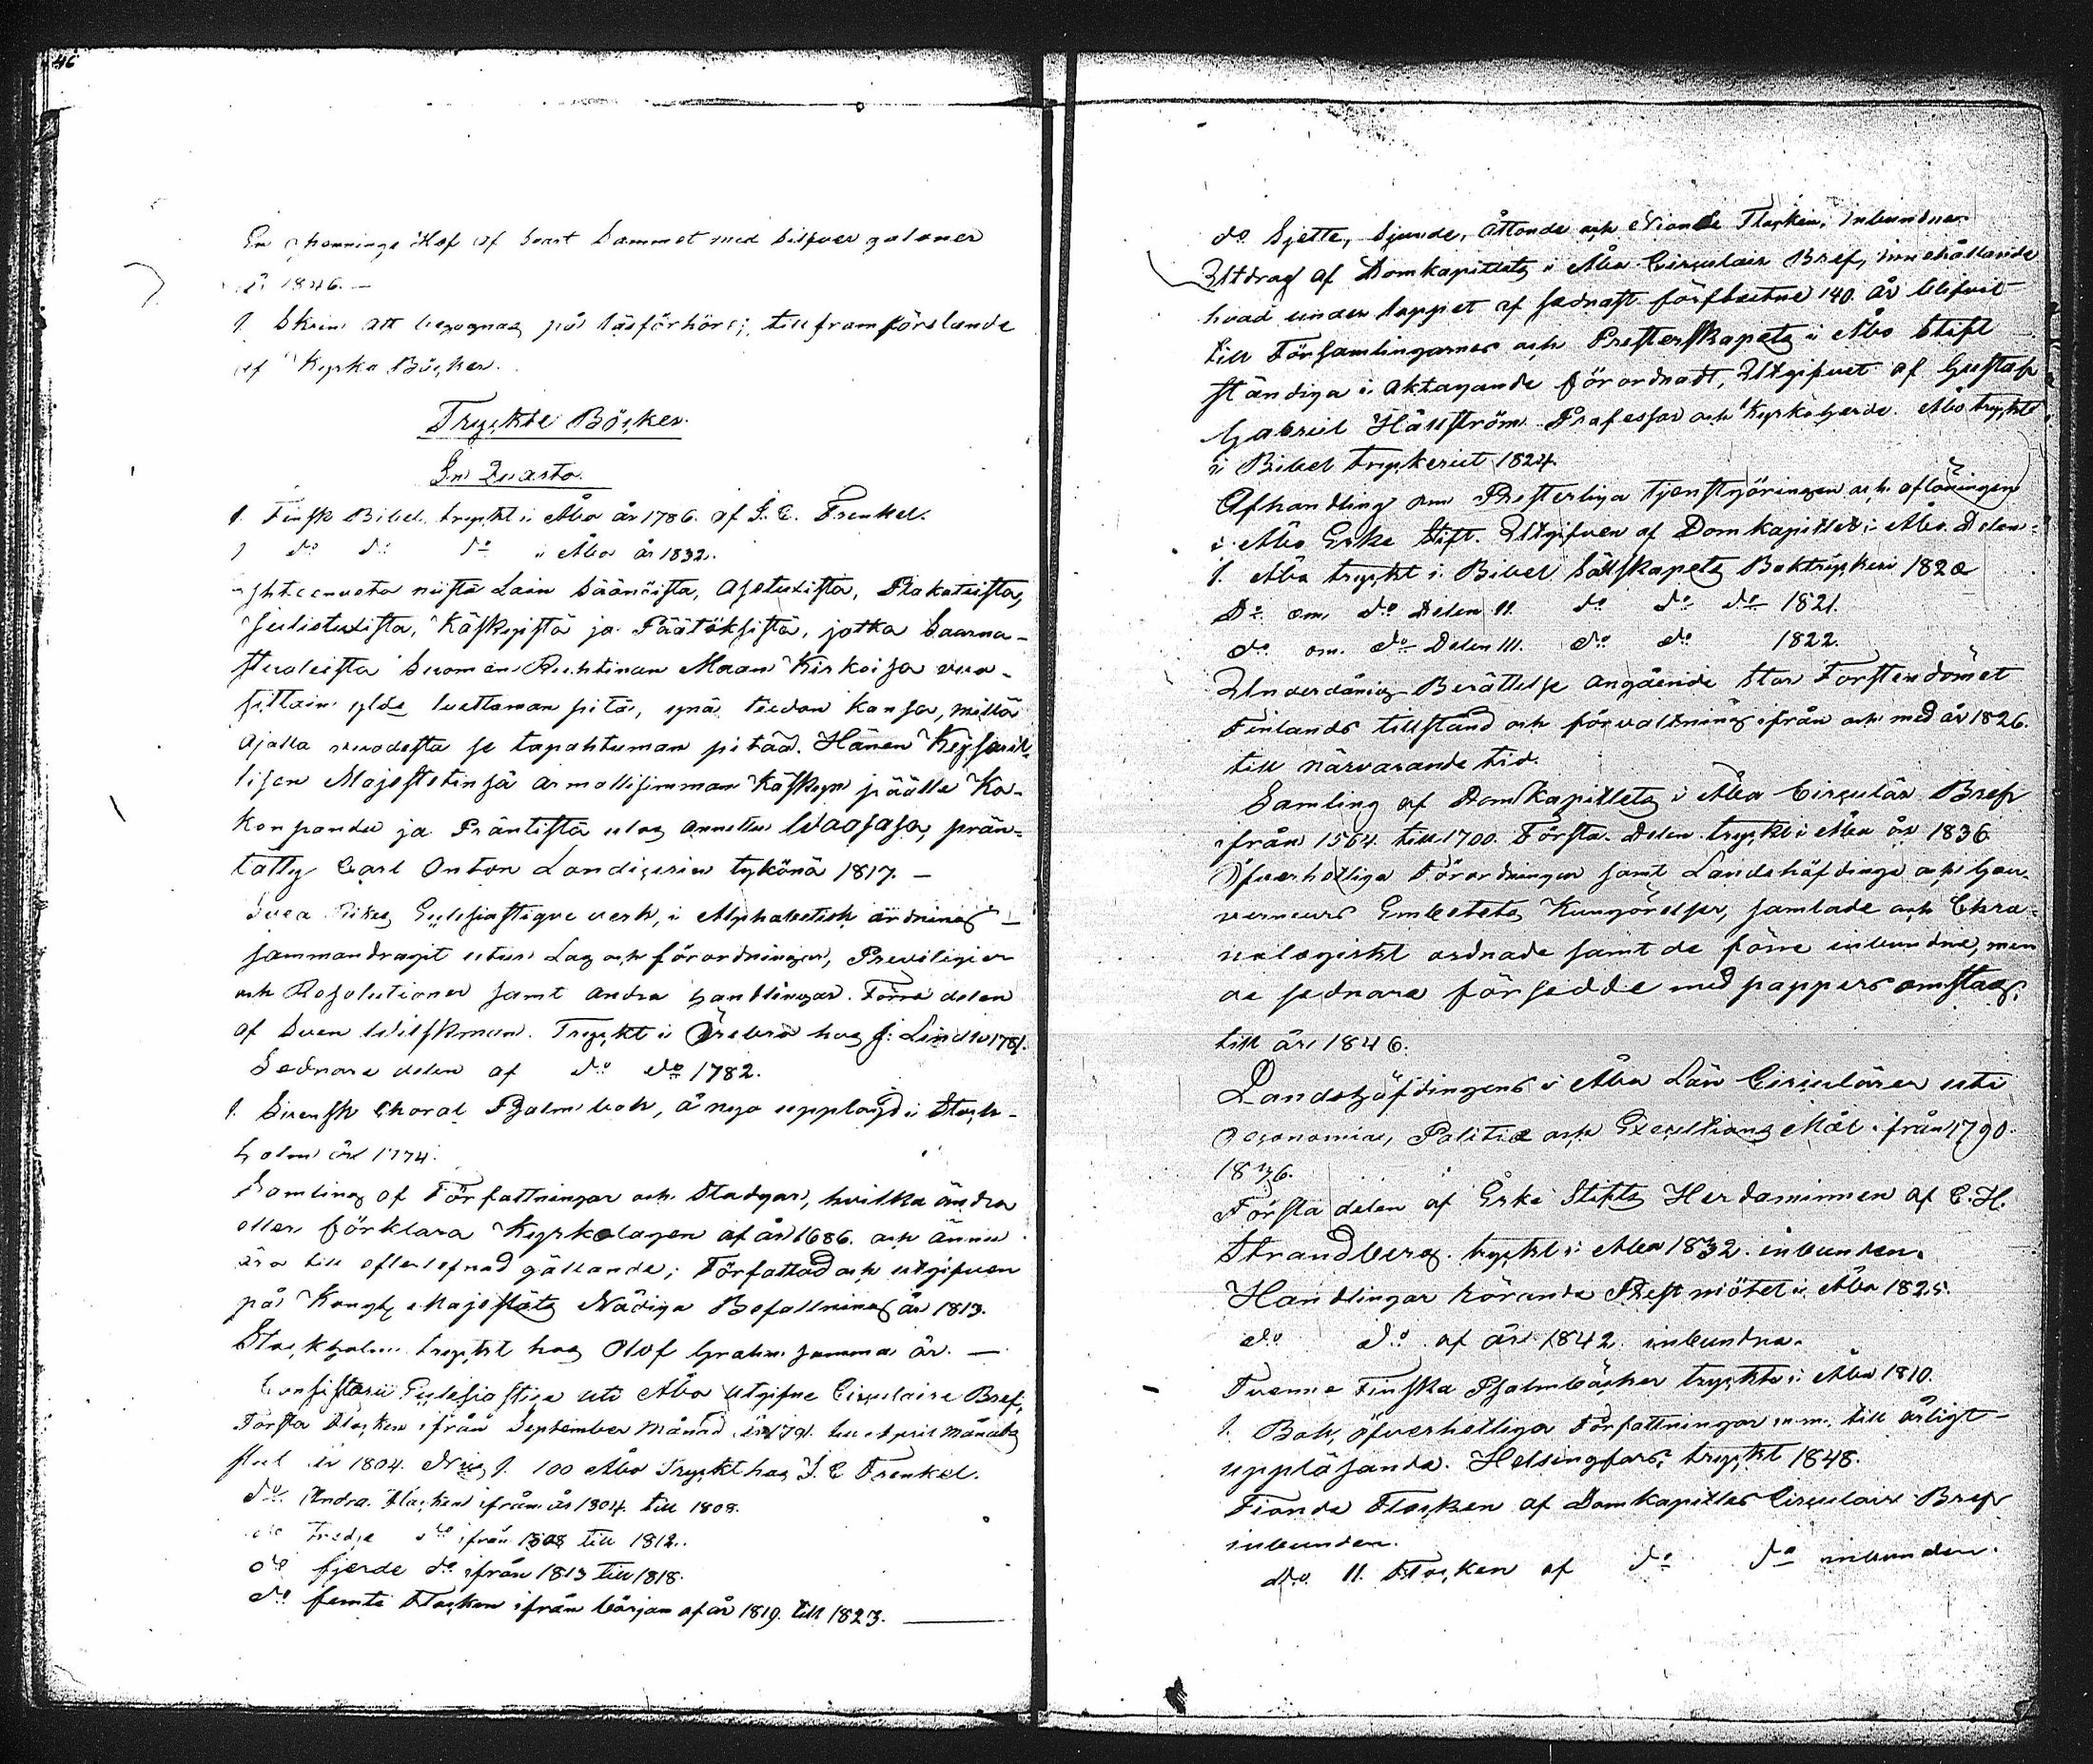 46
En pennings Hof af svart Sammet med silfver galoner
år 1846. —
1. Skrin att begagnas på läsförhörs; till framförslande
af Kyrko Böcker.
Tryckte Böcker.
In Quarto.
1. Finsk Bibel, tryckt i Åbo år 1786. af J. C. Frenkel.
1 do do do i Åbo år 1832.
niistä Lain Säänöistä, Asetuxista, Plakateista,
Julistuxista, Käskyistä ja Päätöksistä, jotka Saarna-
stuoleista Suomen Ruhtinan Maan Kirkoisa vuo-
sittain ylös luettaman pitä, ynä tiedon kansa, millä
ajalla vuodesta se tapahtuman pitää. Hänen Keysaril-
lisen Majestetinsä armollisimman Käskyn päälle Ko-
konpandu ja Präntistä ulos annettu Waasasa, prän-
tätty Carl Anton Londicerin tykönä 1817. —
Svea Rikes Ecclesiastique verk, i Alphabetisk ordning —
sammandragit utur Lag och förordningar, Previligier
och Resolutioner samt andra handlingar. Förra delen
af Sven Wilskman. Tryckt i Örebro hos J: Lindh 1781.
Sednare delen af do do 1782.
1. Svensk Choral Psalmbok, å nyo upplagd i Stock-
holm år 1774.
Samling af Författningar och Stadgar, hvilka ändra
eller förklara Kyrkolagen af år 1686. och ännu
äro till efterlefnad gällande; Författad och utgifven
på Kongl Majestäts Nådiga Befallning år 1813.
Stockholm tryckt hos Olof Grahn samma år. —
Consistorii Ecclesiastice uti Åbo utgifne Circulaire Bref,
Första Flocken ifrån September Månad år 1791. till April Månads
slut år 1804. No 1. 100 Åbo Tryckt hos J. C Frenkel.
do. Andra Flocken ifrån år 1804. till 1808.
do Tredje do ifrån 1808 till 1812.
do fjerde do ifrån 1813 till 1818.
do femte Flocken ifrån början af år 1819. till 1823.
do Sjette, Sjunde, Åttonde och Nionde Flocken, Inbundna
Utdrag af Domkapitlets i Åbo Circulair Bref, innehållande
hvad under loppet af sednast förflutne 140 år blifvit
till Församlingarnes och Presterskapets i Åbo Stift
ständiga i akttagande förordnadt, Utgifvet af Gustaf
Gabriel Hällström Professor och Kyrkoherde. Åbo tryckt
i Bibel tryckeriet 1824.
Afhandling om Presterliga tjenstgöringen och aflöningen
i Åbo Erke Stift. Utgifven af Domkapitlet i Åbo. Delen
1. Åbo tryckt i Bibel Sällskapets Boktryckeri 1820
Do. om do Delen II. do do do 1821.
do om. do Delen III. do do 1822.
Underdånig Berättelse angående Stor Furstendömet
Finlands tillstånd och förvaltning ifrån och med år 1826.
till närvarande tid.
Samling af Domkapitlets i Åbo Circulär Bref
ifrån 1564. till 1700. Första Delen tryckt i Åbo år 1836
Öfverhetliga Förordningar samt Landshöfdinge och Gou-
verneurs Embetets Kungörelser, samlade och Chro-
nologiskt ordnade samt de förre inbundne, men
de sednare försedde med pappers omslag,
till år 1846.
Landshöfdingens i Åbo Län Circulärer uti
Oeconomiæ, Politiæ och Executions Mål ifrån 1790.
1836.
Första delen af Erke Stifts Herdaminnen af C. H.
Strandberg. tryckt i Åbo 1832. inbunden.
Handlingar hörande Prestmötet i Åbo 1825.
do do af år 1842 inbundna.
Tvenne Finska Psalmböcker tryckte i Åbo 1810.
1. Bok, öfverhetliga Författningar m.m. till årligt
uppläsande. Helsingfors, tryckt 1848.
Tionde Flocken af Domkapitles Circulair Bref
inbunden.
do 11. Flocken af do do inbunden.